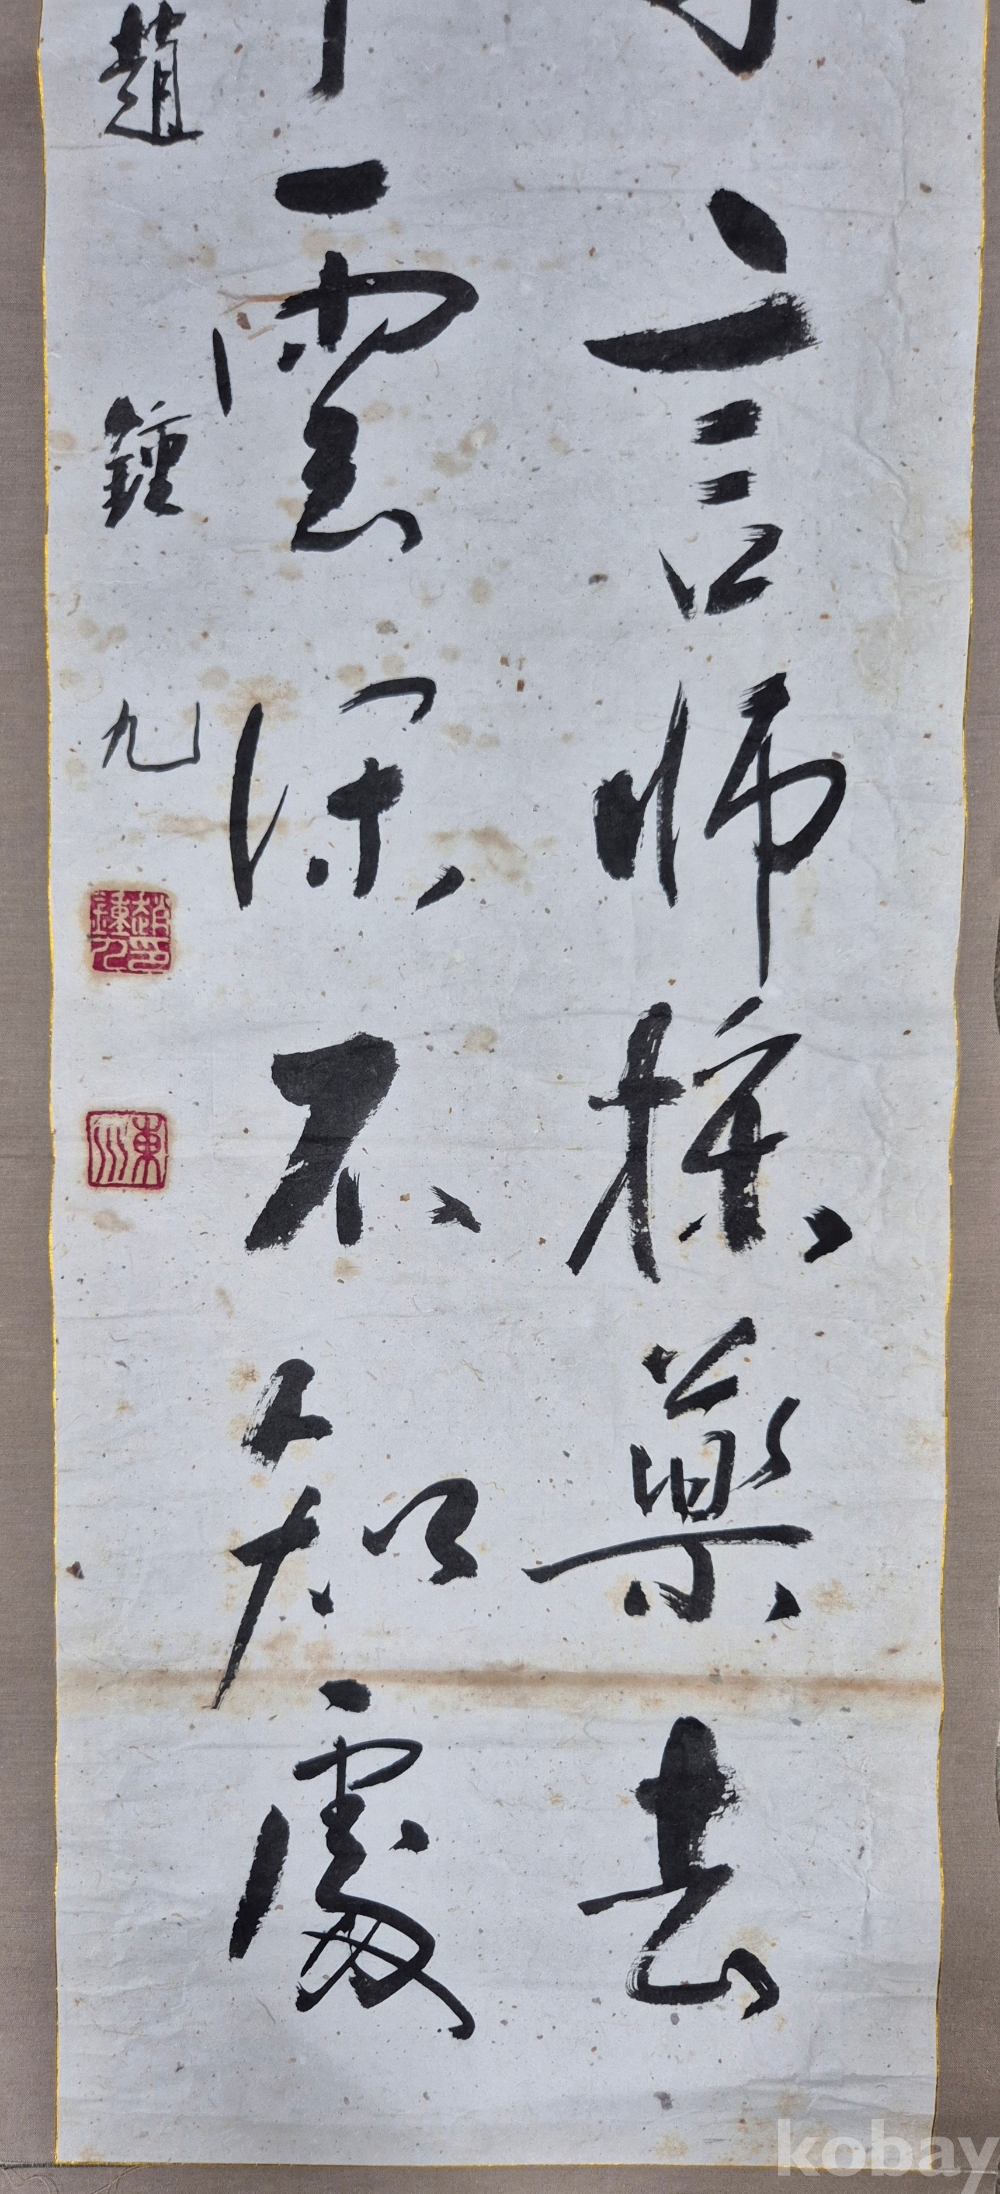 言師採藥去
雲深不知處
趙鍾九
趙鍾九印
東川
kobay